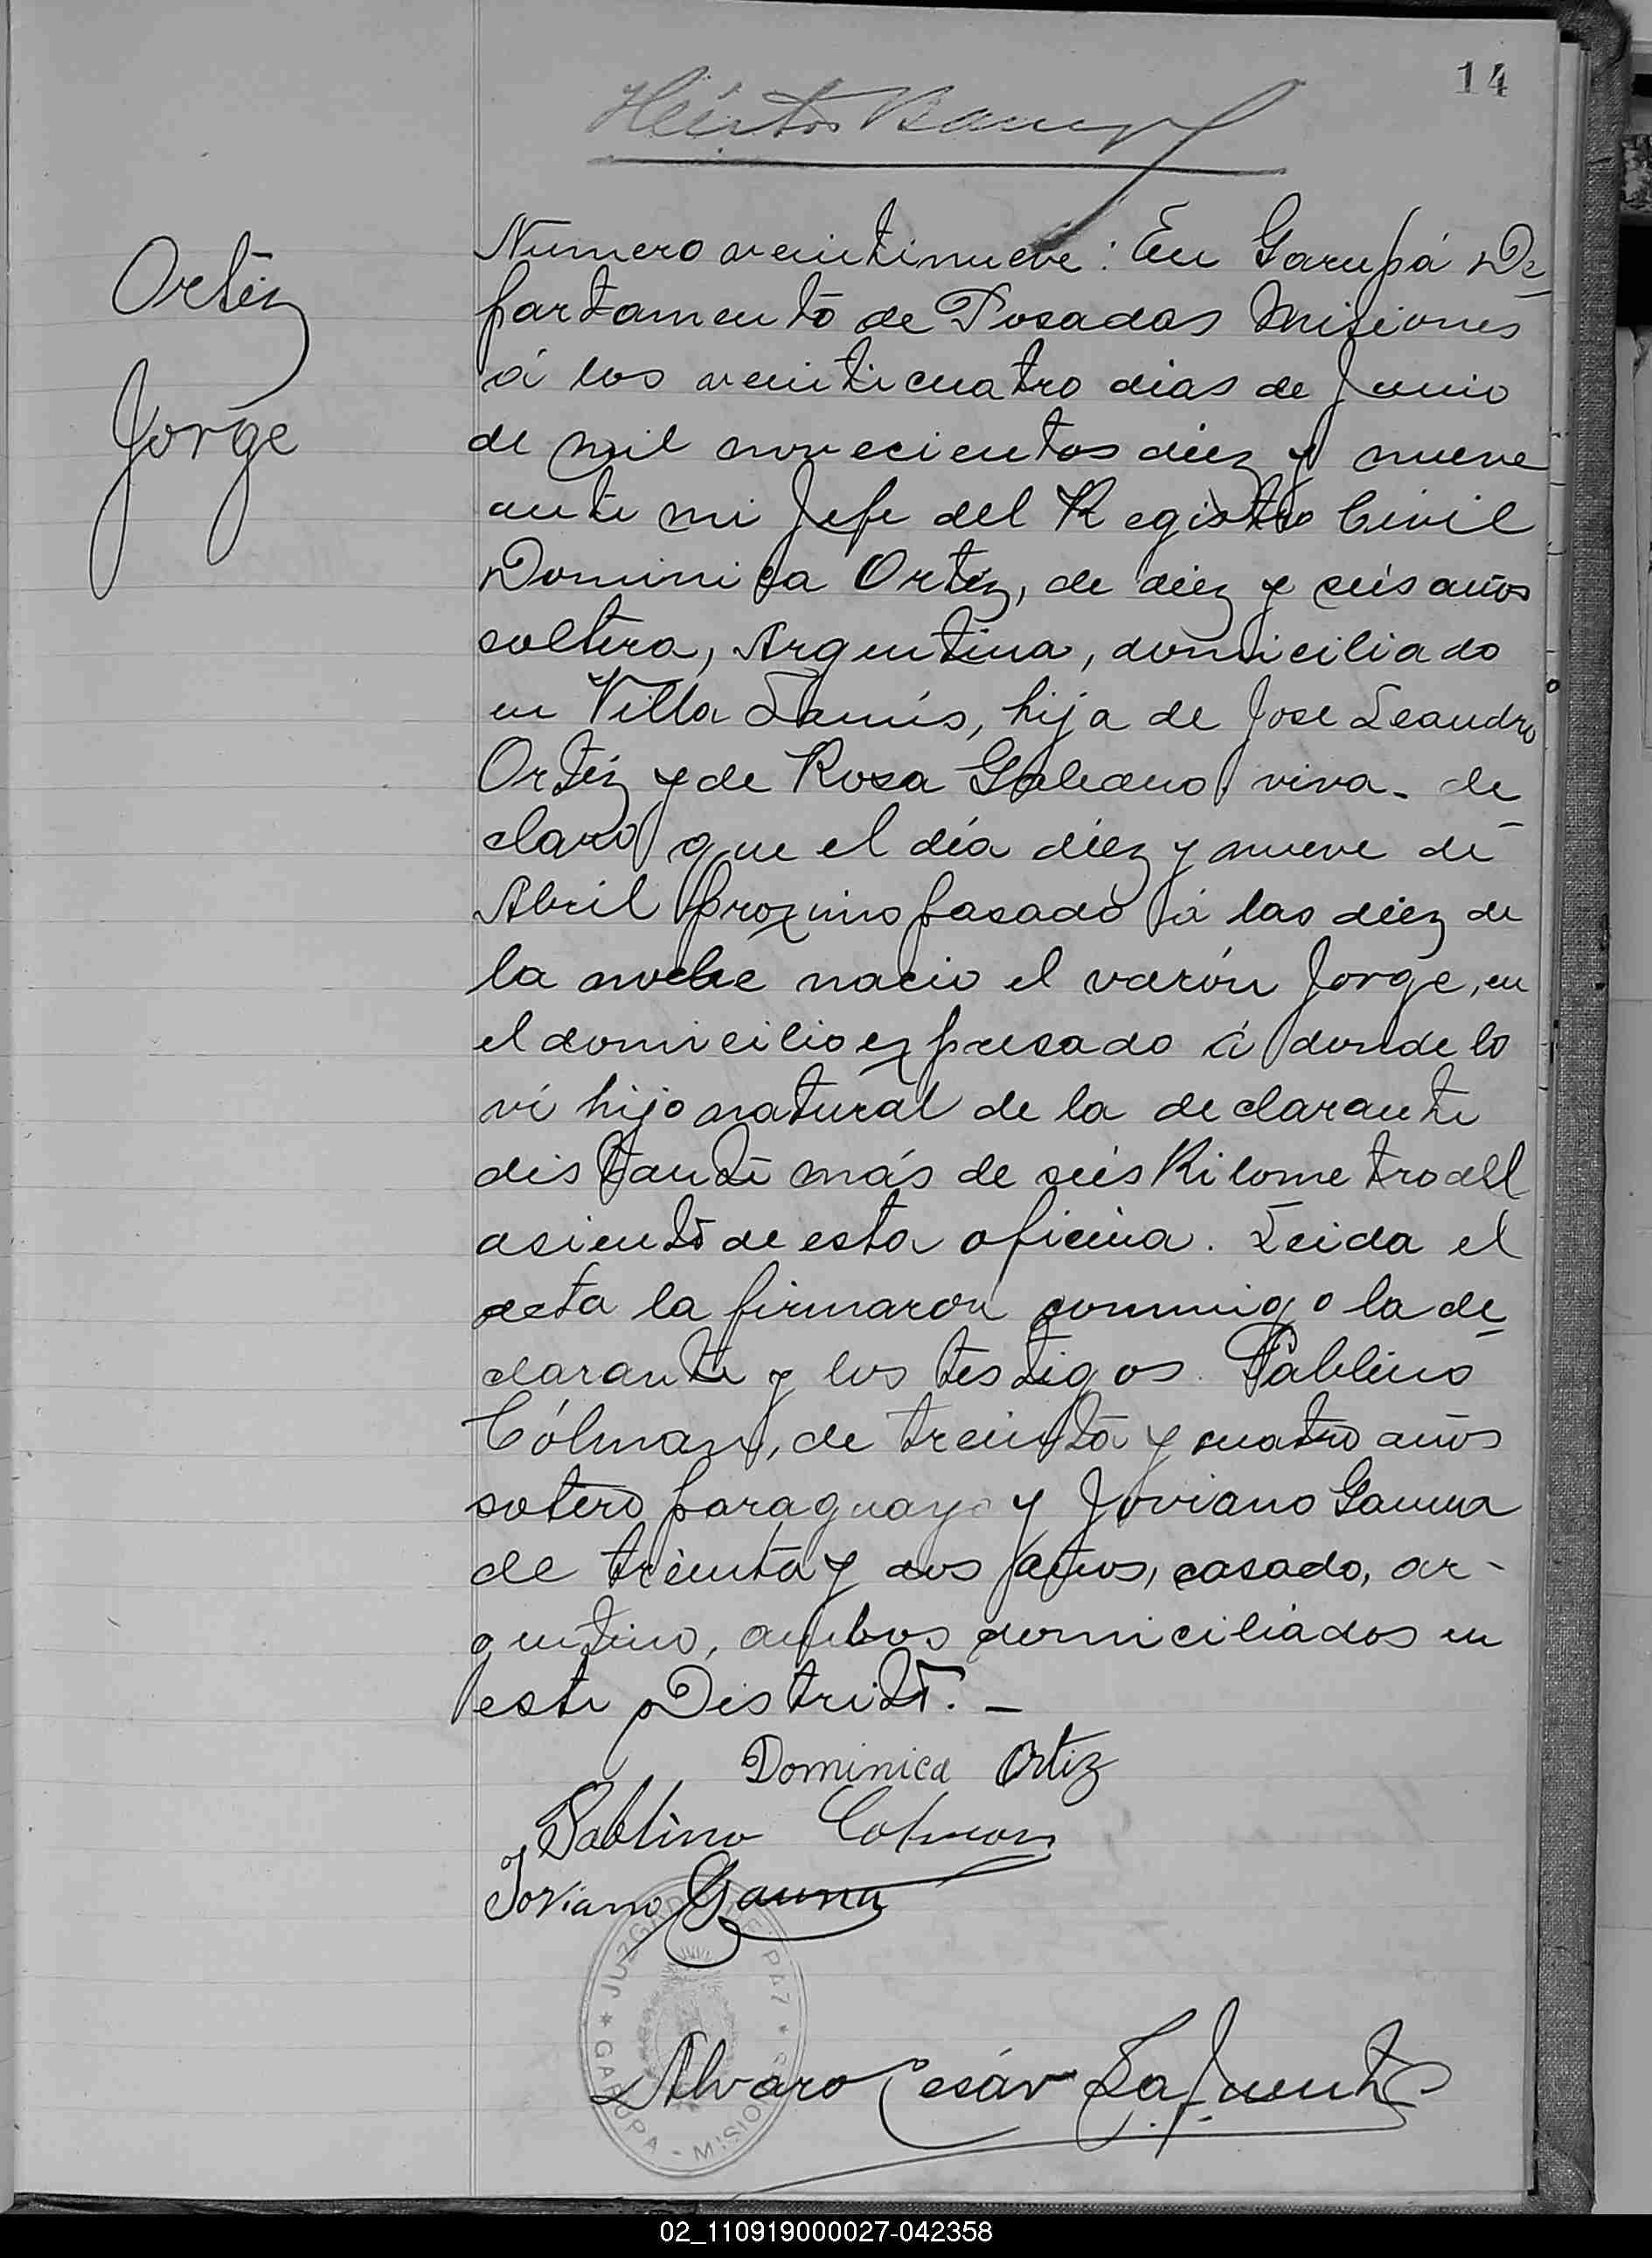 14
Ortíz
Jorge
Numero veintinueve: En Garupá De
partamento de Posadas Misiones
á los veinticuatro dias de Junio
de mil novecientos diez y nueve
ante mi Jefe del Registro Civil
Dominica Ortíz, de diez y seis años
soltera, Argentina, domiciliado
en Villa Lanús, hija de Jose Leandro
Ortíz y de Rosa Galeano viva - de
claró que el día diez y nueve de
Abril proximo pasado á las diez de
la noche nacio el varón Jorge, en
el domicilio expresado á donde lo
ví hijo natural de la declarante
distante más de seis Kilometro del
asiento de esta oficina. Leida el
acta la firmaron conmigo la de
clarante y los testigos Pablino
Cólman, de treinta y cuatro años
sotero paraguayo y Joviano Gauna
de treinta y dos años, casado, ar-
gentino, ambos domiciliados en
este Distrito. -
Dominica Ortiz
Pablino Colman
Joviano Gauna
JUZGADO DE PAZ
GARUPA - MISIONES
Alvaro Cesár Lafuente
02_110919000027-042358